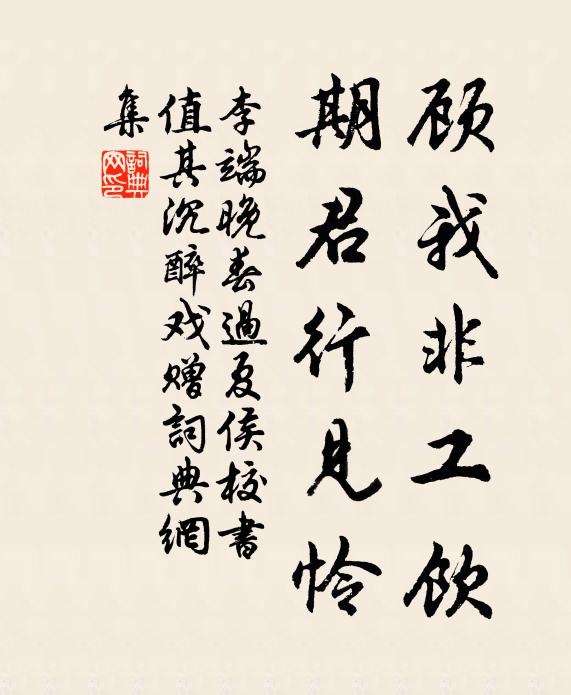 顾我非工饮
期君行见怜
李端晚春過夏侯校書
值其沉醉戏赠詞典網
集
詞典网印